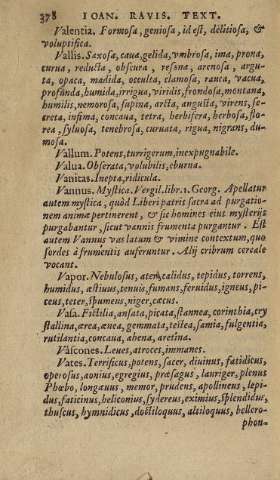 378 IOAN. RAVIS. TEXT.
Valentia. Formosa, geniosa, id est, delitiosa, &
voluptifica.
Vallis. Saxosa, caua, gelida, vmbrosa, ima, prona,
curua, reducta, obscura, resona, arenosa, argu-
ta, opaca, madida, occulea, clamosa, ranca, vacua,
profunda, humida, irrigua, viridis, frondosa, montana,
humilis, nemorosa, supina, arcta, angusta, virens, se-
creta, infima, concaua, tetra, herbifera, herbosa, flo-
rea, syluosa, tenebrosa, curuata, rigua, nigrans, du-
mosa.
Vallum. Potens, turrigerum, inexpugnabile.
Valua. Obserata, volubilis, eburna.
Vanitas. Inepta, ridicula.
Vannus. Mystica. Vergil. lib. 1. Georg. Apellatur
autem mystica, quòd Liberi patris sacra ad purgatio-
nem animæ pertinerent, & sic homines eius mysterijs
purgabantur, sicut vannis frumenta purgantur. Est
autem Vannus vas latum & vimine contextum, quo
sordes à frumentis auferuntur. Alij cribrum cereale
vocant.
Vapor. Nebulosus, ater, calidus, tepidus, torrens,
humidus, æstiuus, tenuis, fumans, feruidus, igneus, pi-
ceus, teter, spumeus, niger, cæcus.
Vasa. Fictilia, ansata, picata, stannea, corinthia, cry
stallina, ærea, ænea, gemmata, teitea, samia, fulgentia,
rutilantia, concaua, ahena, aretina.
Vascones. Leues, atroces, immanes.
Vates. Terrificus, potens, sacer, diuinus, fatidicus,
operosus, aonius, egregius, præsagus, lauriger, plenus
Phœbo, longæuus, memor, prudens, apollineus, lepi-
dus, faticinus, heliconius, sydereus, eximius, splendidus,
thuscus, hymnidicus, doctiloquus, altiloquus, bellero-
phon-